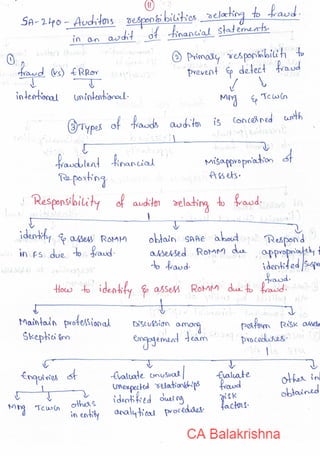 11
SA-240 - Auditors responsibilities relating to fraud
in an audit of financial statements
① fraud (vs) ERROR
② Primary responsibility to
prevent & detect fraud
intentional unintentional.
Mng & TCWGN
③ Types of frauds auditor is concerned with
fraudulent financial
Reporting
Misappropriation of
Assets.
Responsibility of auditor relating to fraud.
identify & assess ROMM
in F.S. due to fraud.
obtain SAAE about
assessed ROMM due
to fraud.
Respond
appropriately t
identified/Susp
fraud.
How to identify & assess ROMM due to fraud.
Maintain professional
Skepticism
Discussion among
engagement team
perform Risk asses
procedures.
Enquiries of
Evaluate unusual/
unexpected relationships
identified during
analytical procedures.
Evaluate
fraud
risk
factors.
Other in
obtained
Mng TCWGN others
in entity
CA Balakrishna